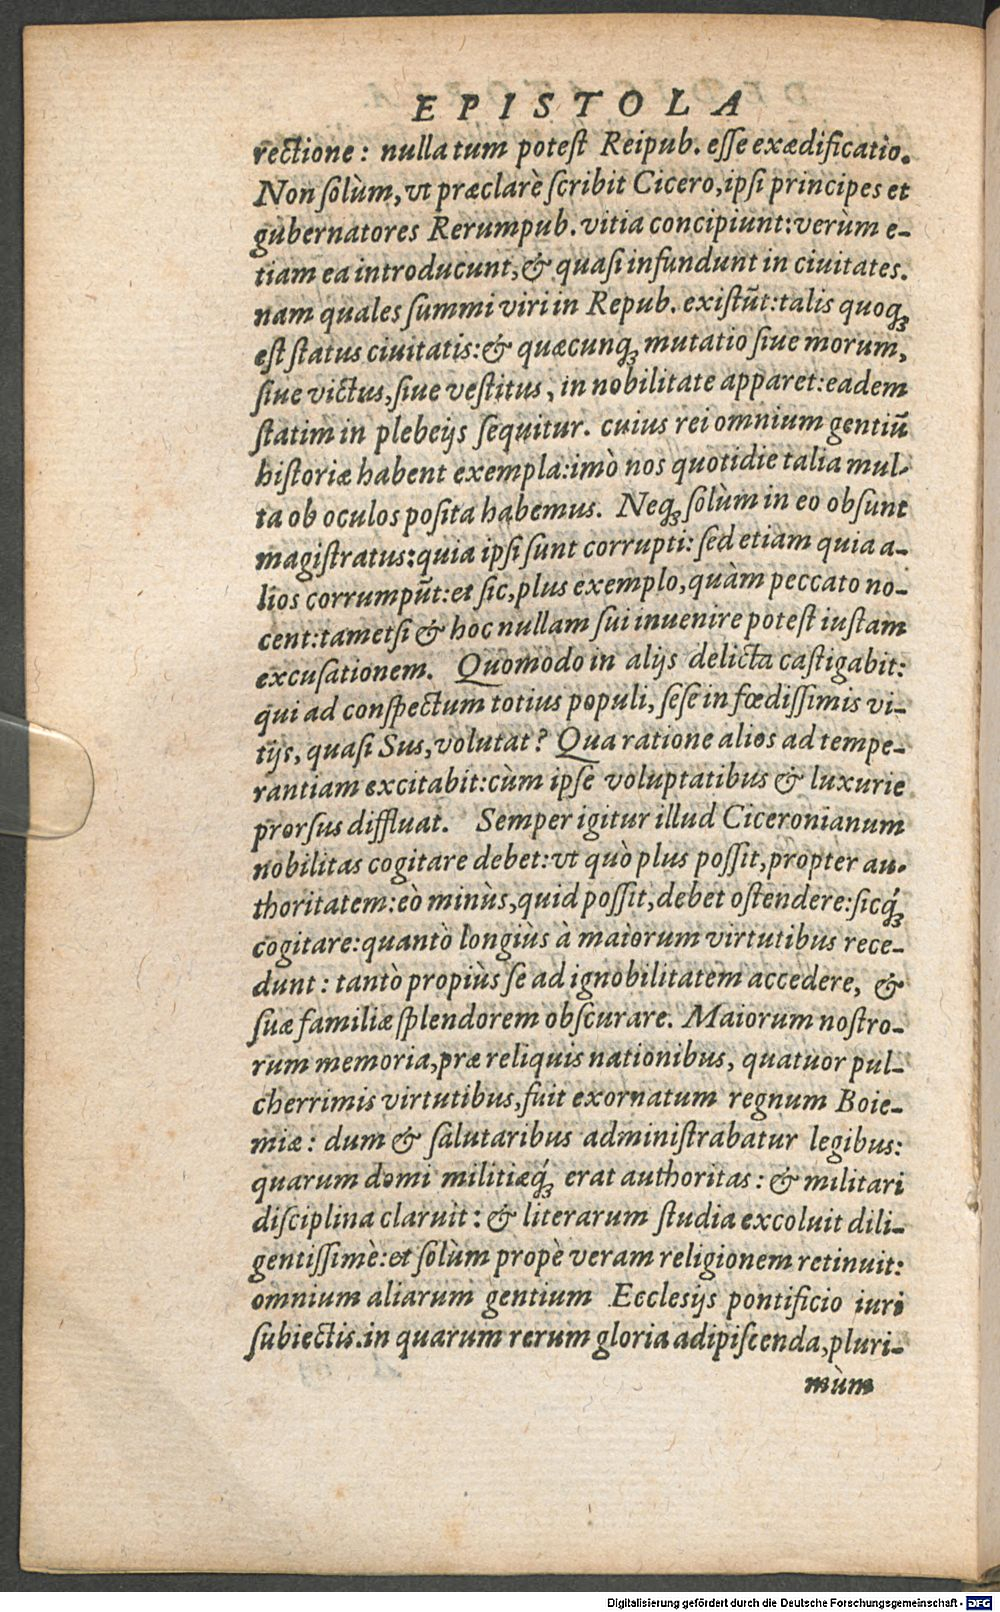 EPISTOLA
rectione: nulla tum potest Reipub. esse exædificatio.
Non ſolùm, vt præclarè ſcribit Cicero, ipſi principes et
gubernatores Rerumpub. vitia concipiunt: verùm e-
tiam ea introducunt, & quaſi infundunt in ciuitates.
nam quales ſummi viri in Repub. exiſtūt: talis quoqꝫ
eſt ſtatus ciuitatis: & quæcunqꝫ mutatio ſiue morum,
ſiue victus, ſiue veſtitus, in nobilitate apparet: eadem
ſtatim in plebeijs ſequitur. cuius rei omnium gentiū
hiſtoriæ habent exempla: imò nos quotidie talia mul-
ta ob oculos poſita habemus. Neqꝫ ſolùm in eo obſunt
magiſtratus: quia ipſi ſunt corrupti: ſed etiam quia a-
lios corrumpūt: et ſic, plus exemplo, quàm peccato no-
cent: tametſi & hoc nullam ſui inuenire poteſt iuſtam
excuſationem. Quomodo in alijs delicta caſtigabit:
qui ad conſpectum totius populi, ſeſe in fœdiſſimis vi-
tijs, quaſi Sus, volutat? Qua ratione alios ad tempe-
rantiam excitabit: cùm ipſe voluptatibus & luxurie
prorſus diffluat. Semper igitur illud Ciceronianum
nobilitas cogitare debet: vt quò plus poſſit, propter au-
thoritatem: eò minùs, quid poſſit, debet oſtendere: ſicq́ꝫ
cogitare: quantò longiùs à maiorum virtutibus rece-
dunt: tantò propiùs ſe ad ignobilitatem accedere, &
ſuæ familiæ ſplendorem obſcurare. Maiorum noſtro-
rum memoria, præ reliquis nationibus, quatuor pul-
cherrimis virtutibus, fuit exornatum regnum Boie-
miæ: dum & ſalutaribus adminiſtrabatur legibus:
quarum domi militiæq́ꝫ erat authoritas: & militari
diſciplina claruit: & literarum ſtudia excoluit dili-
gentiſſimè: et ſolùm propè veram religionem retinuit:
omnium aliarum gentium Eccleſijs pontificio iuri
ſubiectis. in quarum rerum gloria adipiſcenda, pluri-
mùm
Digitalisierung gefördert durch die Deutsche Forschungsgemeinschaft - DFG